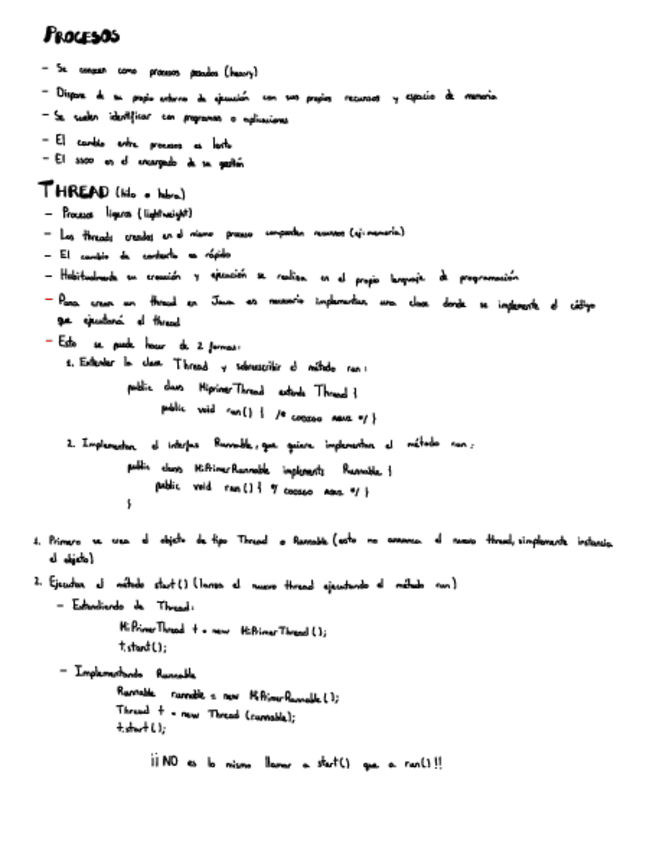 PROCESOS
- Se conocen como procesos pesados (heavy)
- Dispone de su propio entorno de ejecución con sus propios recursos y espacio de memoria
- Se suelen identificar con programas o aplicaciones
- El cambio entre procesos es lento
- El SSOO es el encargado de su gestión
THREAD (hilo o hebra)
- Procesos ligeros (lightweight)
- Los threads creados en el mismo proceso comparten recursos (ej: memoria)
- El cambio de contexto es rápido
- Habitualmente su creación y ejecución se realiza en el propio lenguaje de programación
- Para crear un thread en Java es necesario implementar una clase donde se implemente el código
que ejecutará el thread
- Esto se puede hacer de 2 formas:
1. Extender la clase Thread y sobreescribir el método run:
public class MiprimerThread extends Thread {
public void run() { /* CODIGO AQUI */ }
2. Implementar el interfaz Runnable, que quiere implementar el método run:
public class MiPrimerRunnable implements Runnable {
public void run() { */ CODIGO AQUI */ }
}
1. Primero se crea el objeto de tipo Thread o Runnable (esto no arranca el nuevo thread, simplemente instancia
el objeto)
2. Ejecutar el método start() (lanza el nuevo thread ejecutando el método run)
- Extendiendo de Thread:
MiPrimerThread t = new MiPrimerThread();
t.start();
- Implementando Runnable
Runnable runnable = new MiPrimerRunnable();
Thread t = new Thread (runnable);
t.start();
¡¡NO es lo mismo llamar a start() que a run()!!